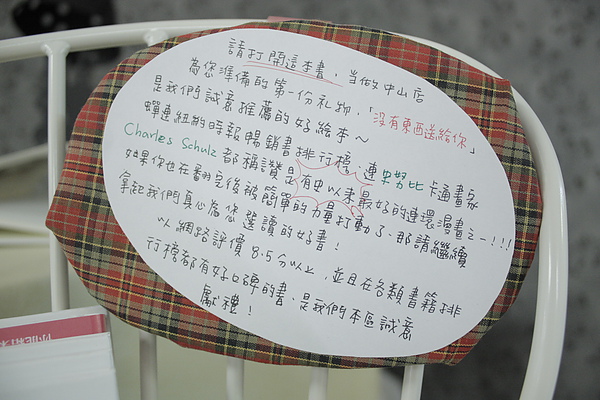 請打開這本書，當做中山店
為您準備的第一份礼物，「沒有東西送給你」
是我們誠意推薦的好繪本～
蟬連紐約時報暢銷書排行榜，連史努比卡通畫家
Charles Schulz 都稱讚是有史以來最好的連環漫畫之一!!!
如果你也在看完之後被簡單的力量打動了，那請繼續
拿起我們真心為您選讀的好書！
以網路評價 8.5分以上，並且在各類書籍排
行榜都有好口碑的書、是我們本區誠意
獻禮！